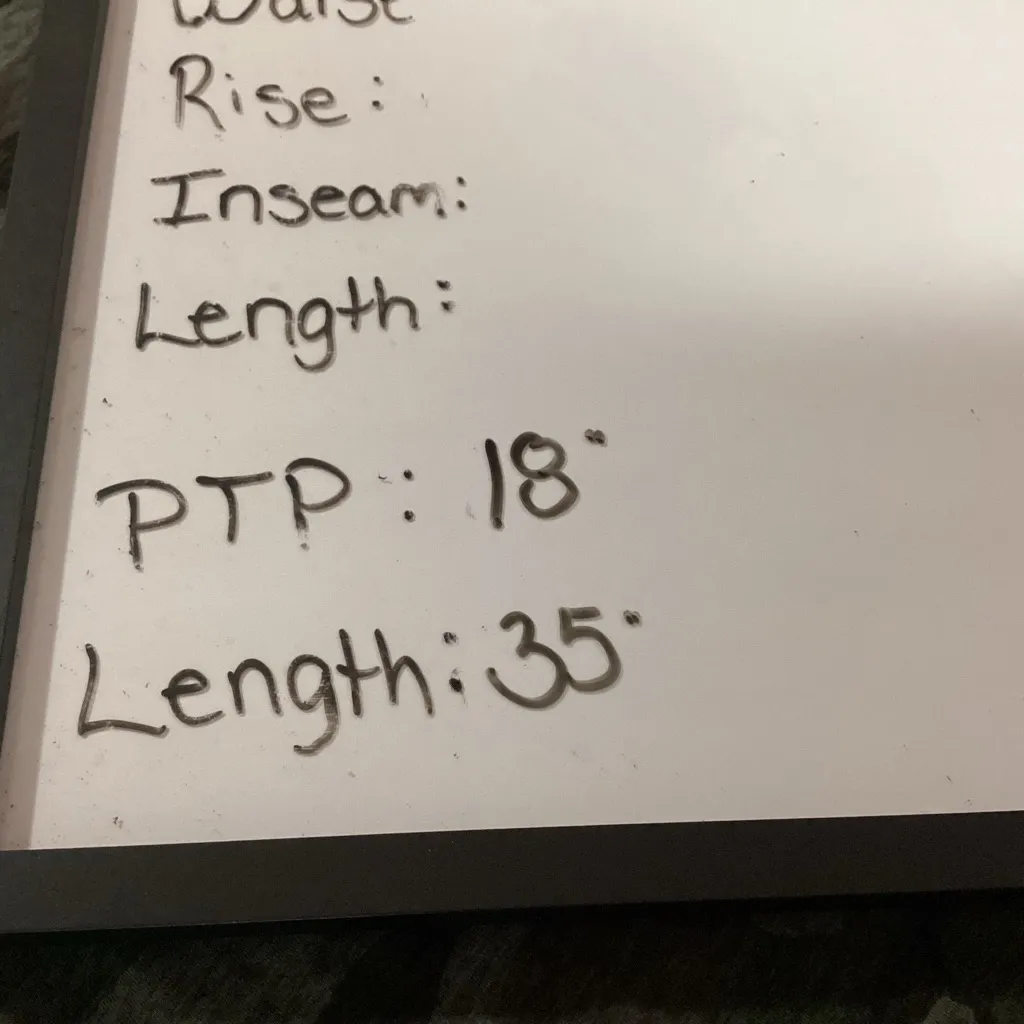 Waist
Rise:
Inseam:
Length:
PTP: 18"
Length: 35"